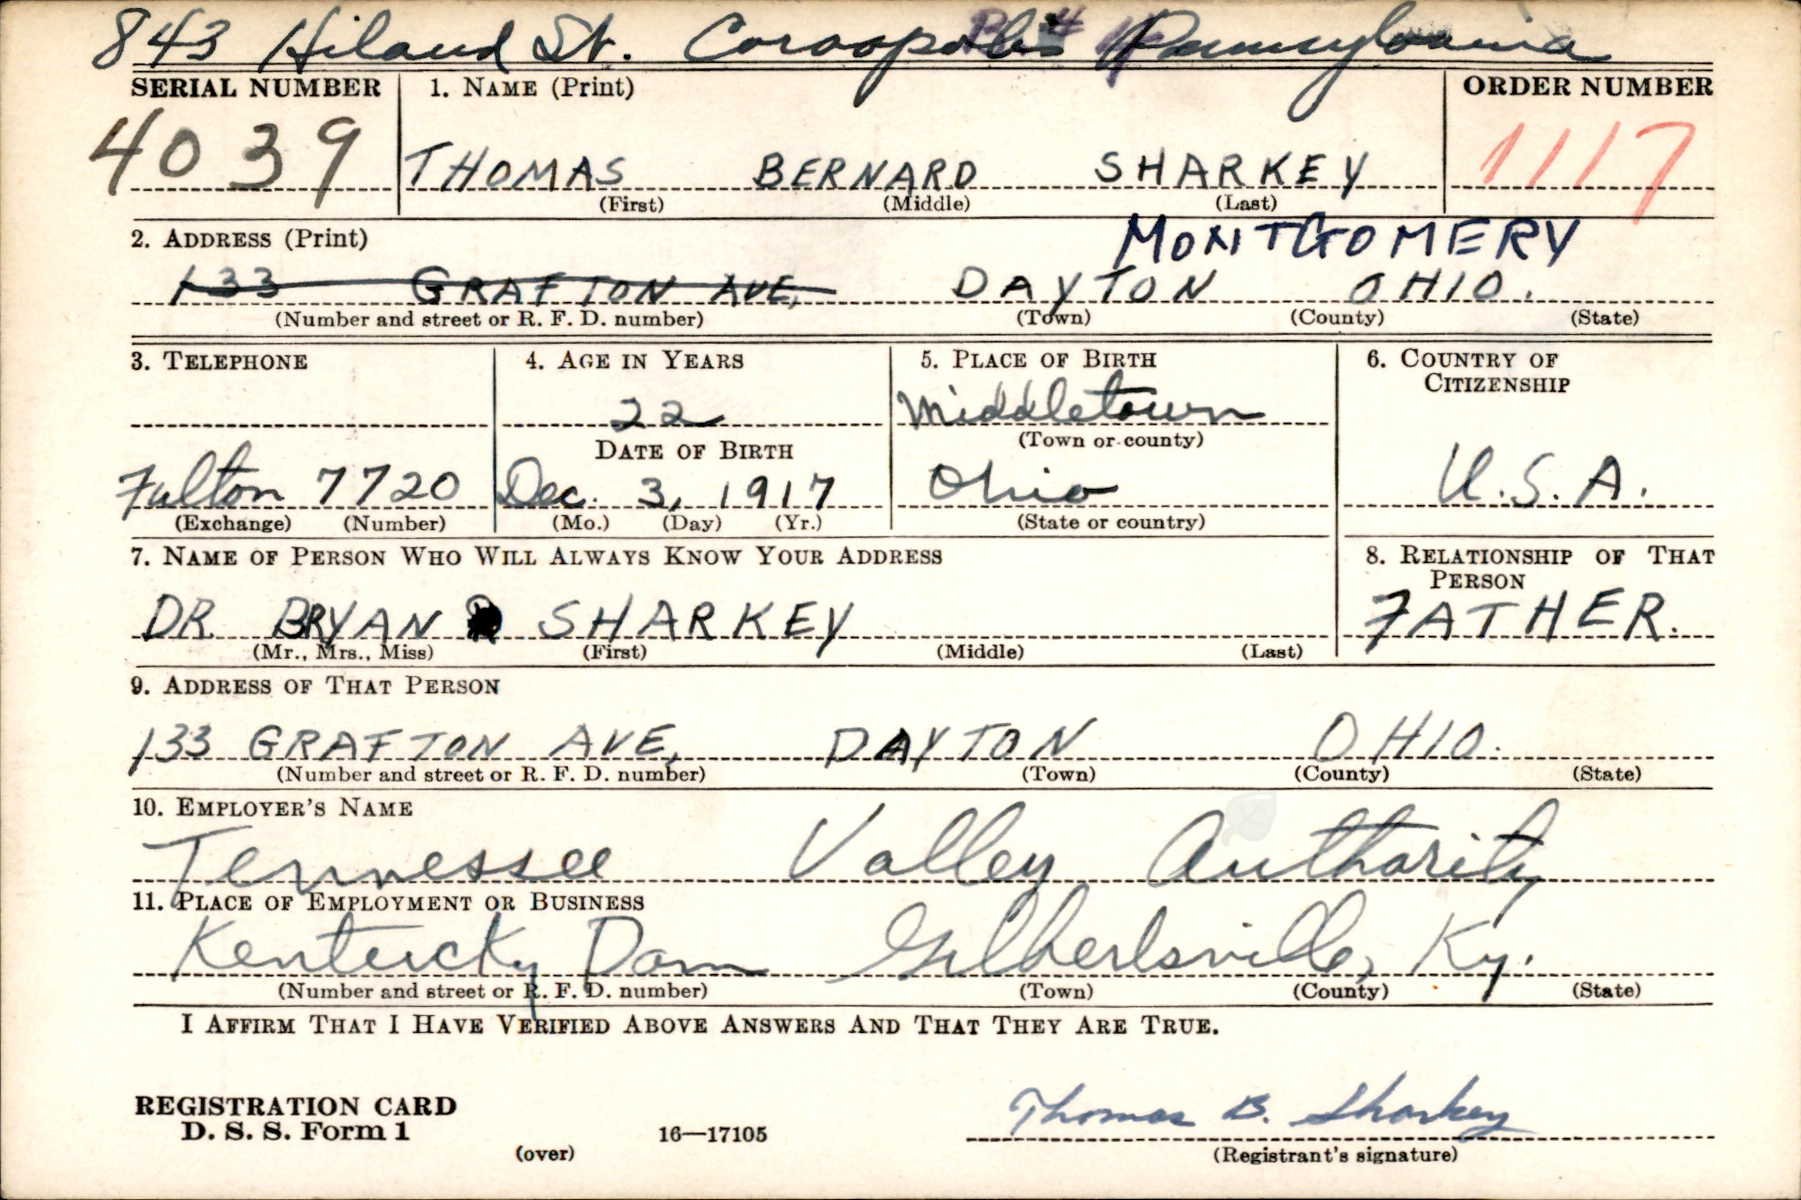 843 Hiland St. Coraopolis Pennsylvania
SERIAL NUMBER 1. NAME (Print) ORDER NUMBER
4039 THOMAS BERNARD SHARKEY 1117
(First) (Middle) (Last)
2. ADDRESS (Print) MONTGOMERY
133 GRAFTON AVE, DAYTON OHIO.
(Number and street or R. F. D. number) (Town) (County) (State)
3. TELEPHONE 4. AGE IN YEARS 5. PLACE OF BIRTH 6. COUNTRY OF CITIZENSHIP
22 Middletown
DATE OF BIRTH (Town or county)
Fulton 7720 Dec. 3, 1917 Ohio U.S.A.
(Exchange) (Number) (Mo.) (Day) (Yr.) (State or country)
7. NAME OF PERSON WHO WILL ALWAYS KNOW YOUR ADDRESS 8. RELATIONSHIP OF THAT PERSON
DR. BRYAN SHARKEY FATHER.
(Mr., Mrs., Miss) (First) (Middle) (Last)
9. ADDRESS OF THAT PERSON
133 GRAFTON AVE, DAYTON OHIO.
(Number and street or R. F. D. number) (Town) (County) (State)
10. EMPLOYER'S NAME
Tennessee Valley Authority
11. PLACE OF EMPLOYMENT OR BUSINESS
Kentucky Dam Gilbertsville, Ky.
(Number and street or R. F. D. number) (Town) (County) (State)
I AFFIRM THAT I HAVE VERIFIED ABOVE ANSWERS AND THAT THEY ARE TRUE.
REGISTRATION CARD Thomas B. Sharkey
D. S. S. Form 1 16—17105
(over) (Registrant's signature)